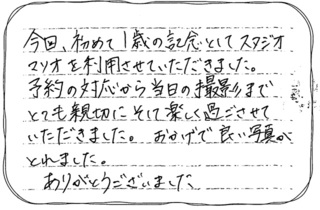 今回、初めて1歳の記念としてスタジオ
マリオを利用させていただきました。
予約の対応から当日の撮影まで
とても親切にそして楽しく過ごさせて
いただきました。 おかげで良い写真が
とれました。
ありがとうございました